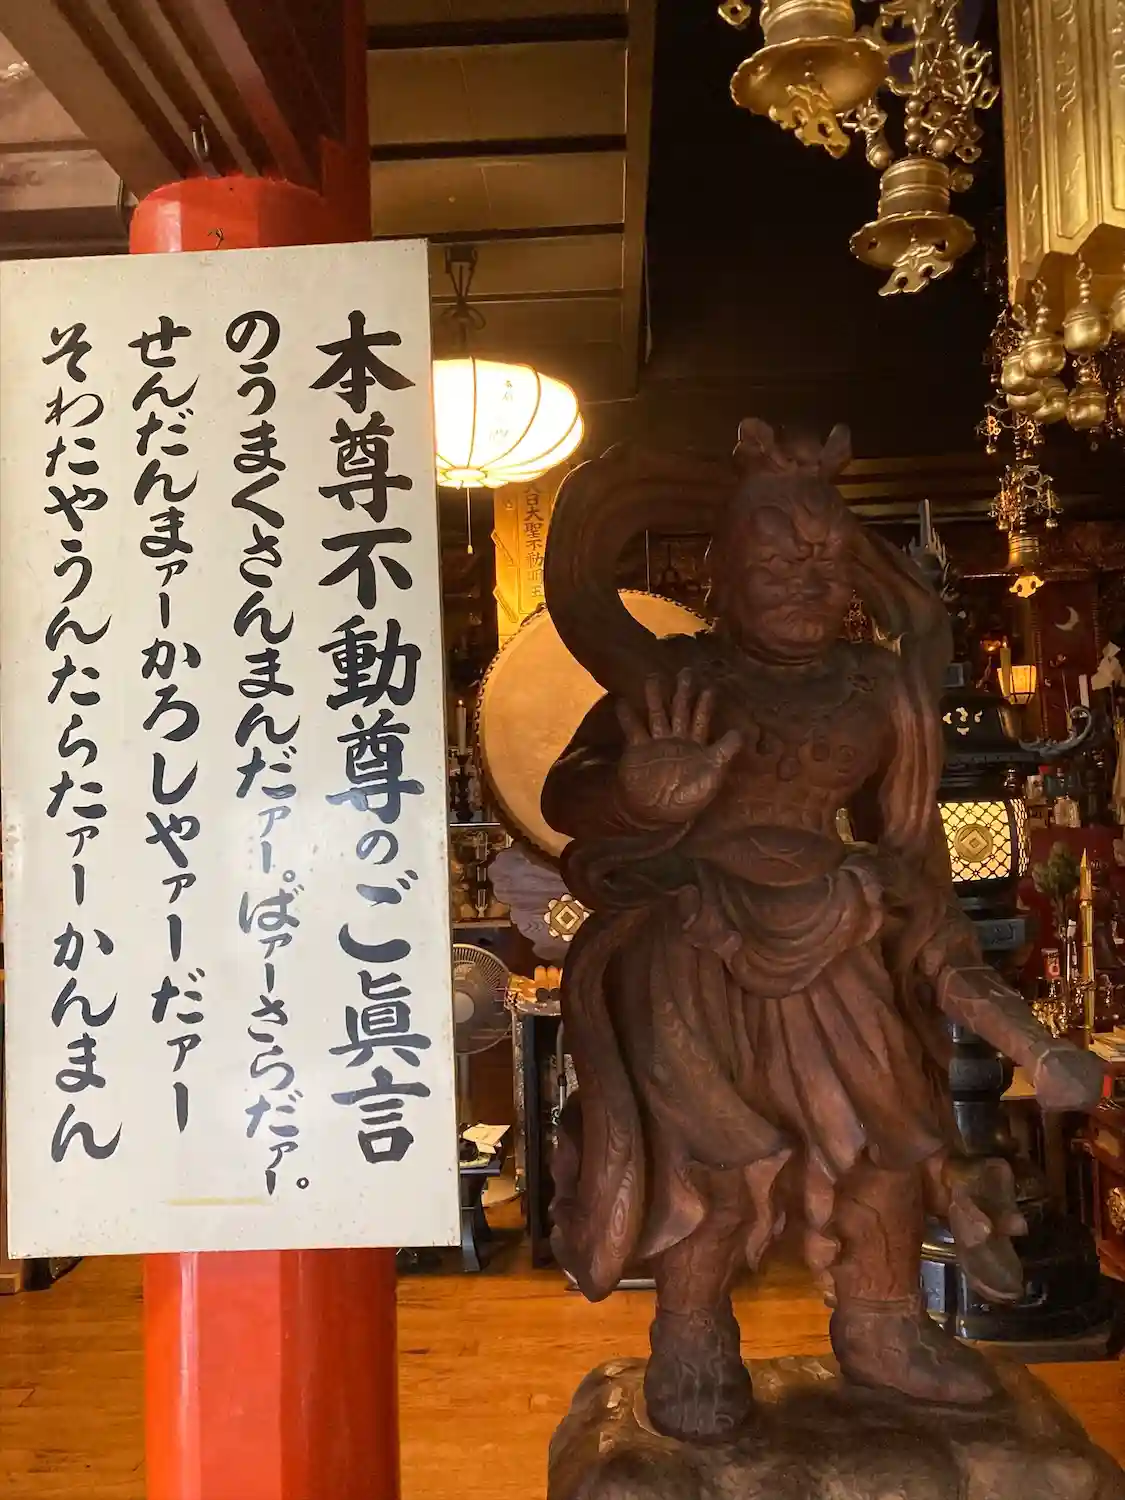 本尊不動尊のご眞言
のうまくさんまんだァー。ばァーさらだァー。
せんだんまァーかろしやァーだァー
そわたやうんたらたァーかんまん
大日大聖不動明王